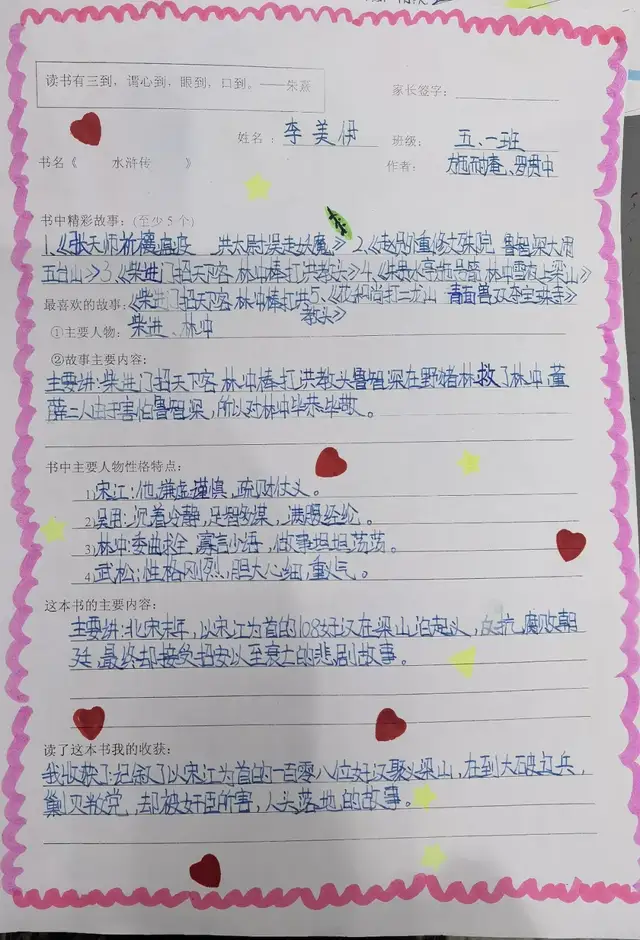 读书有三到，谓心到，眼到，口到。——朱熹
家长签字：
姓名：李美伊 班级：五、一班
书名《 水浒传 》 作者：施耐庵、罗贯中
书中精彩故事：(至少5个)
1.《张天师祈禳瘟疫 洪太尉误走妖魔》 2.《赵员外重修文殊院 鲁智深大闹
五台山》3.《柴进门招天下客 林冲棒打洪教头》4.《朱贵水亭施号箭 林冲雪夜上梁山》
最喜欢的故事：《柴进门招天下客 林冲棒打洪教头》 5.《花和尚打二龙山 青面兽双夺宝珠寺》
①主要人物：柴进、林冲
②故事主要内容：
主要讲：柴进门招天下客 林冲棒打洪教头鲁智深在野猪林救了林冲，董
薛二人由于害怕鲁智深，所以对林冲毕恭毕敬。
书中主要人物性格特点：
1.宋江：他谦虚谨慎，疏财仗义。
2.吴用：沉着冷静，足智多谋，满腹经纶。
3.林冲：委曲求全，寡言少语，做事坦坦荡荡。
4.武松：性格刚烈，胆大心细，重义气。
这本书的主要内容：
主要讲：北宋末年，以宋江为首的108好汉在梁山泊起义，反抗腐败朝
廷，最终却接受招安以至衰亡的悲剧故事。
读了这本书我的收获：
我收获了：记叙了以宋江为首的一百零八位好汉聚义梁山，在到大破辽兵，
剿灭叛党，却被奸臣所害，人头落地的故事。